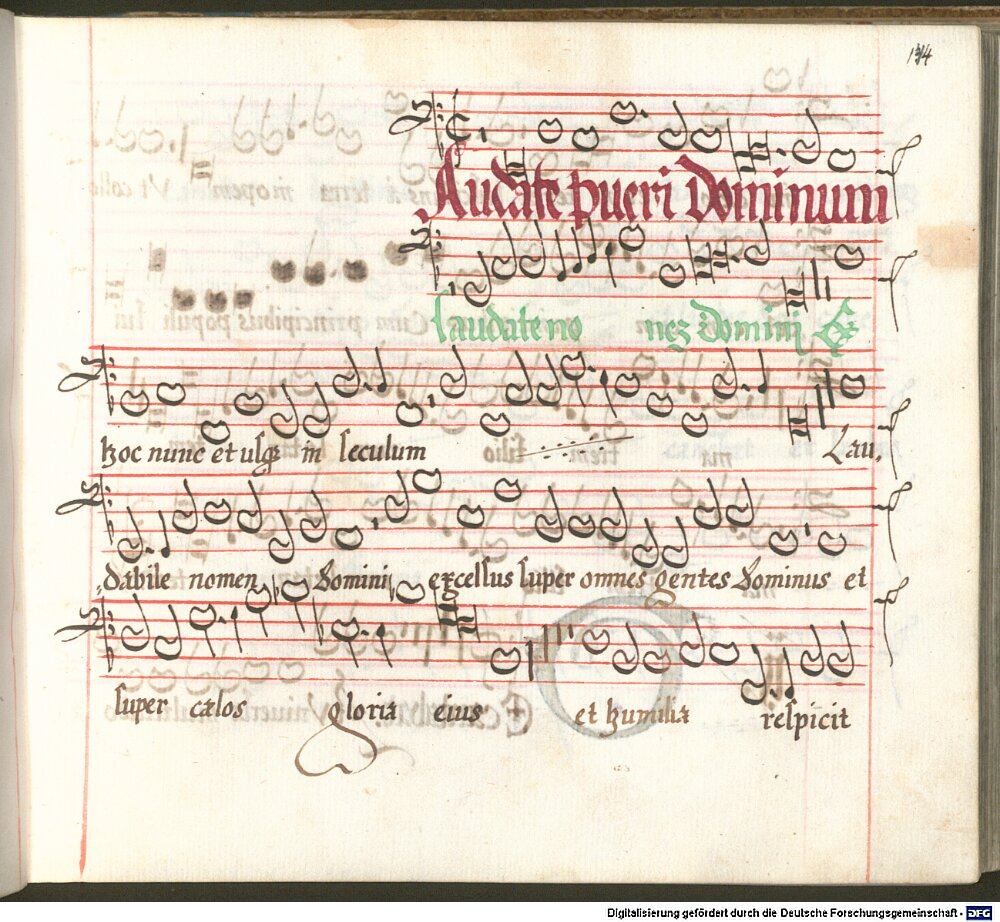 134
Laudate pueri Dominum
laudate no nez Domini Ex
hoc nunc et usqz in seculum Lau,
dabile nomen Domini excelsus super omnes gentes Dominus et
super cælos gloria eius et humilia respicit
Digitalisierung gefördert durch die Deutsche Forschungsgemeinschaft - DFG